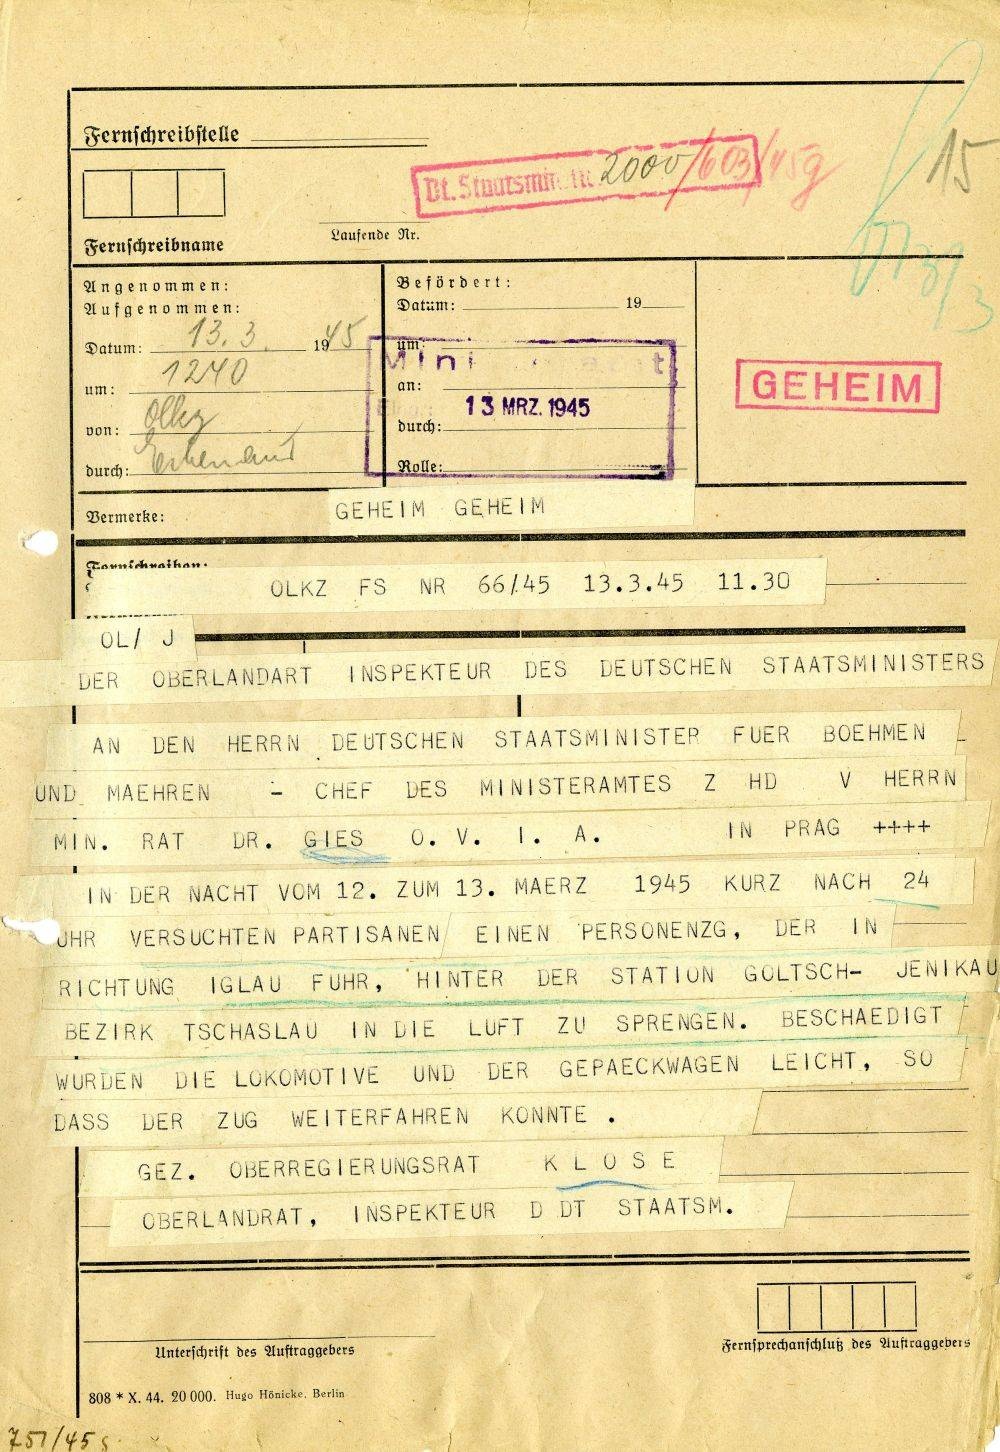 Fernschreibstelle
Dt. Staatsmin. Nr. 2000/603/45g
15
Fernschreibname
Laufende Nr.
Angenommen:
Aufgenommen:
Datum: 13. 3. 1945
um: 1240
von: Olkz
durch:
Befördert:
Datum: 19
um:
an:
durch:
Rolle:
13 MRZ. 1945
GEHEIM
Vermerke:
GEHEIM GEHEIM
Fernschreiben:
OLKZ FS NR 66/45 13.3.45 11.30
OL/ J
DER OBERLANDART INSPEKTEUR DES DEUTSCHEN STAATSMINISTERS
AN DEN HERRN DEUTSCHEN STAATSMINISTER FUER BOEHMEN
UND MAEHREN - CHEF DES MINISTERAMTES Z HD V HERRN
MIN. RAT DR. GIES O. V. I. A. IN PRAG ++++
IN DER NACHT VOM 12. ZUM 13. MAERZ 1945 KURZ NACH 24
UHR VERSUCHTEN PARTISANEN EINEN PERSONENZG, DER IN
RICHTUNG IGLAU FUHR, HINTER DER STATION GOLTSCH- JENIKAU
BEZIRK TSCHASLAU IN DIE LUFT ZU SPRENGEN. BESCHAEDIGT
WURDEN DIE LOKOMOTIVE UND DER GEPAECKWAGEN LEICHT, SO
DASS DER ZUG WEITERFAHREN KONNTE .
GEZ. OBERREGIERUNGSRAT K L O S E
OBERLANDRAT, INSPEKTEUR D DT STAATSM.
Unterschrift des Auftraggebers
Fernsprechanschluß des Auftraggebers
808 * X. 44. 20 000. Hugo Hönicke, Berlin
757/45 g